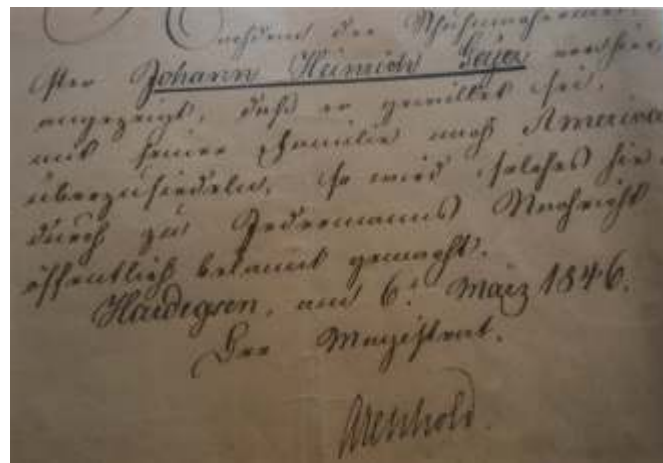 Nachdem der Schuhmachermei-
ster Johann Heinrich Geyer
angezeigt, daß er gewillet sei,
mit seiner Familie nach America
überzusiedeln, so wird solches hier
durch zu Jedermanns Nachricht
öffentlich bekannt gemacht.
Hardegsen, am 6. März 1846.
Der Magistrat.